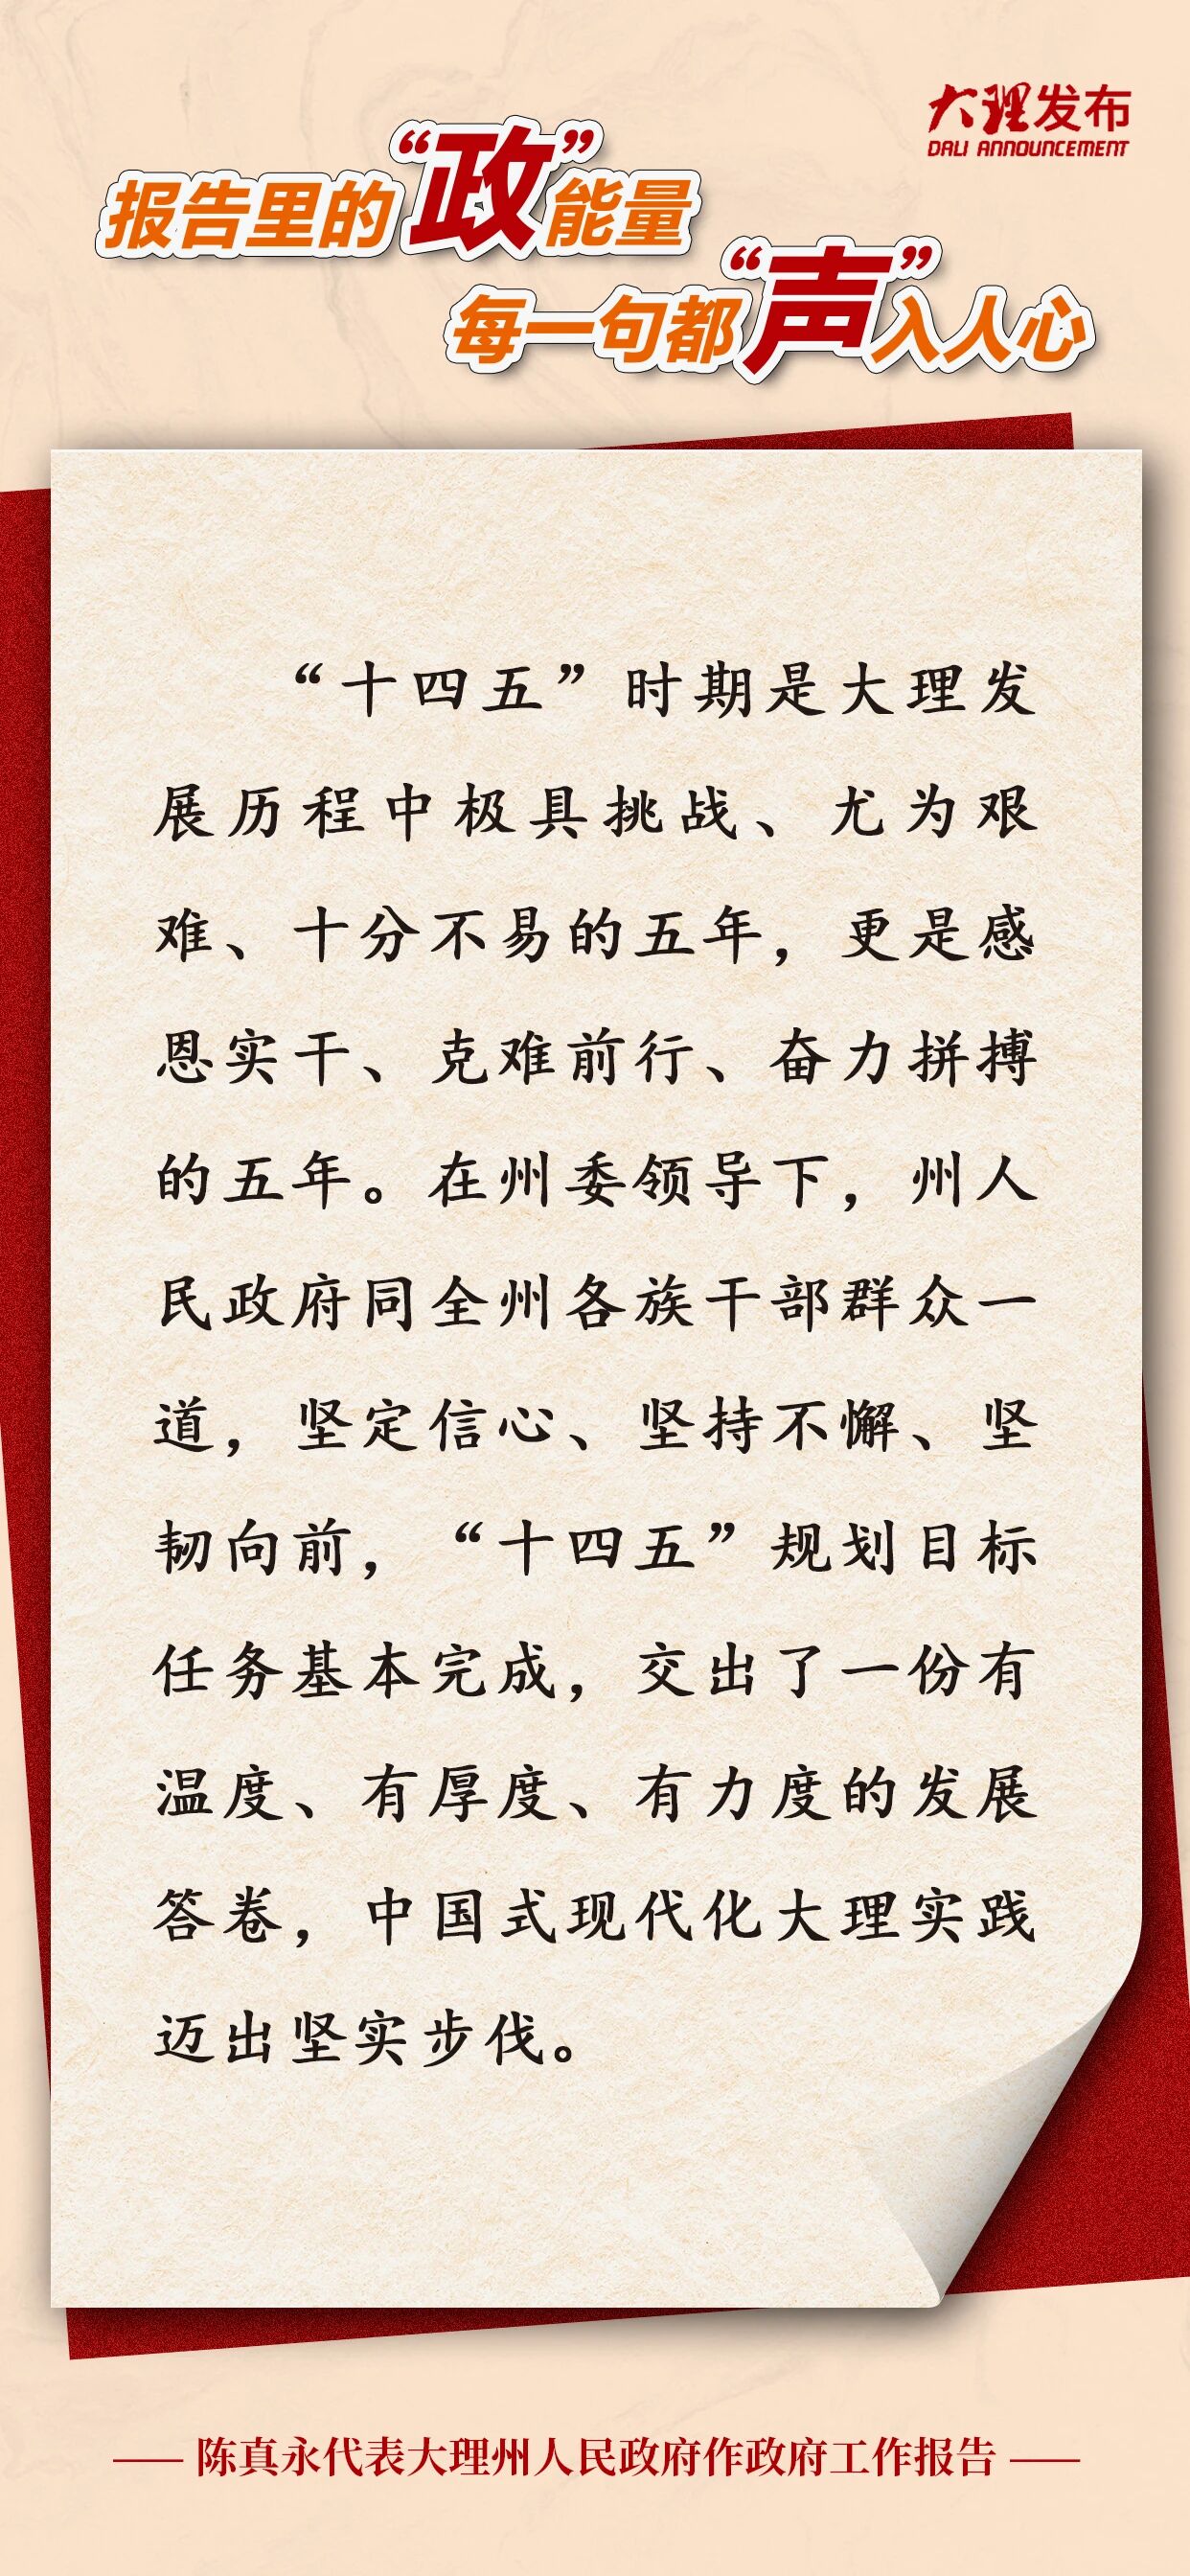 大理发布
DALI ANNOUNCEMENT
报告里的“政”能量
每一句都“声”入人心
“十四五”时期是大理发
展历程中极具挑战、尤为艰
难、十分不易的五年，更是感
恩实干、克难前行、奋力拼搏
的五年。在州委领导下，州人
民政府同全州各族干部群众一
道，坚定信心、坚持不懈、坚
韧向前，“十四五”规划目标
任务基本完成，交出了一份有
温度、有厚度、有力度的发展
答卷，中国式现代化大理实践
迈出坚实步伐。
—— 陈真永代表大理州人民政府作政府工作报告 ——